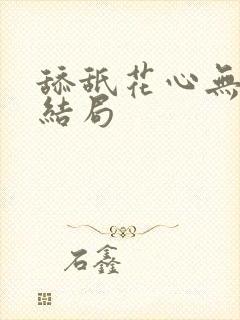 舔舐花心無
結局
石鑫